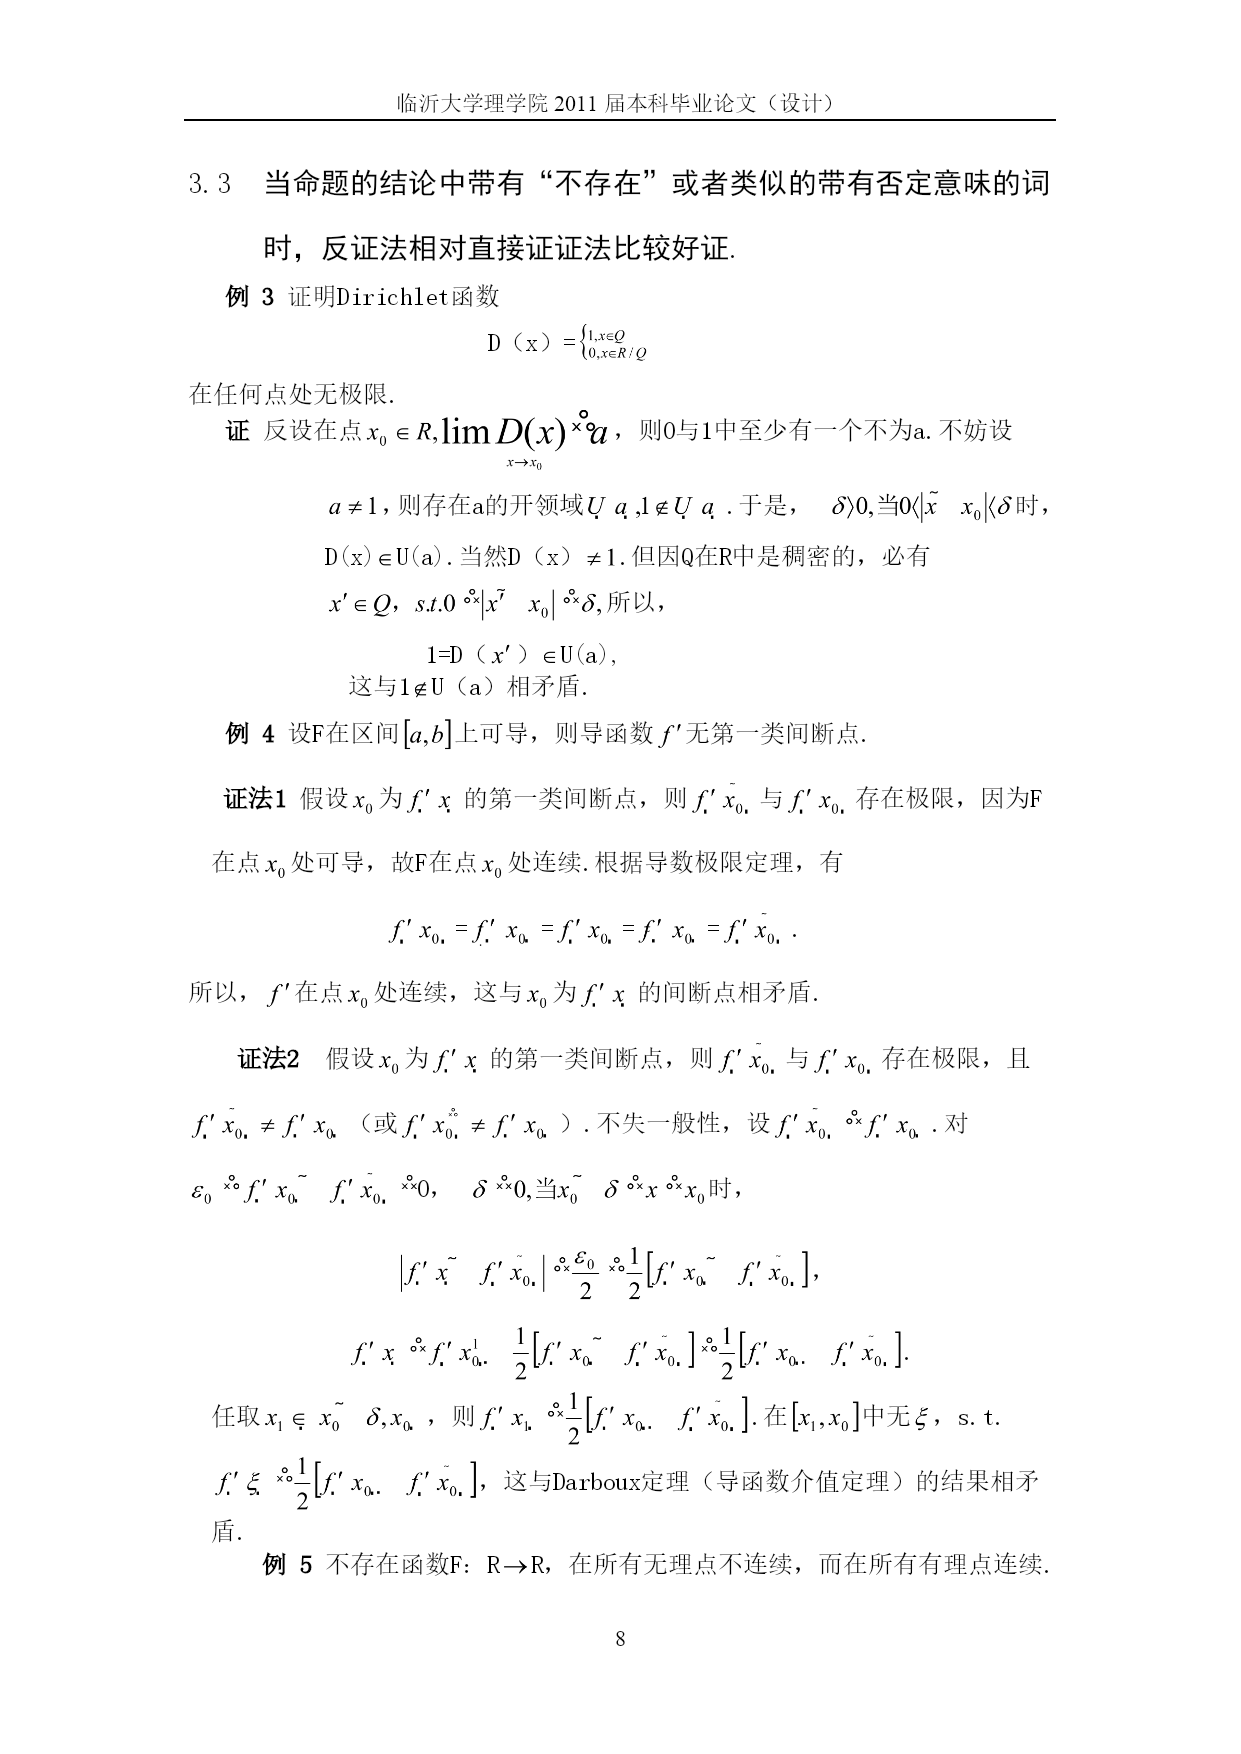 临沂大学理学院 2011 届本科毕业论文（设计）
3.3 当命题的结论中带有“不存在”或者类似的带有否定意味的词
时，反证法相对直接证证法比较好证.
例 3 证明Dirichlet函数
D（x）={1,x∈Q
0,x∈R/Q
在任何点处无极限.
证 反设在点 x₀ ∈ R, lim D(x) a，则0与1中至少有一个不为a.不妨设
x→x₀
a ≠ 1，则存在a的开领域U a ,1∉U a .于是， δ⟩0,当0⟨|x̃ x₀|⟨δ时，
D(x)∈U(a).当然D（x）≠1.但因Q在R中是稠密的，必有
x′∈Q，s.t.0 |x̃′ x₀| δ,所以，
1=D（x′）∈U(a),
这与1∉U（a）相矛盾.
例 4 设F在区间[a,b]上可导，则导函数 f′无第一类间断点.
证法1 假设 x₀ 为 f′ x 的第一类间断点，则 f′ x₀ 与 f′ x₀ 存在极限，因为F
在点 x₀ 处可导，故F在点 x₀ 处连续.根据导数极限定理，有
f′ x₀ = f′ x₀ = f′ x₀ = f′ x₀ = f′ x₀ .
所以， f′在点 x₀ 处连续，这与 x₀ 为 f′ x 的间断点相矛盾.
证法2 假设 x₀ 为 f′ x 的第一类间断点，则 f′ x₀ 与 f′ x₀ 存在极限，且
f′ x₀ ≠ f′ x₀ （或 f′ x₀ ≠ f′ x₀ ）.不失一般性，设 f′ x₀ f′ x₀ .对
ε₀ f′ x₀ ~ f′ x₀ 0， δ 0,当x₀ ~ δ x x₀时，
|f′ x ~ f′ x₀| ε₀/2 1/2[f′ x₀ ~ f′ x₀]，
f′ x f′ x₀ 1/2[f′ x₀ ~ f′ x₀] 1/2[f′ x₀ f′ x₀].
任取 x₁ ∈ x₀ ~ δ,x₀ ，则 f′ x₁ 1/2[f′ x₀ f′ x₀].在[x₁,x₀]中无ξ，s.t.
f′ ξ 1/2[f′ x₀ f′ x₀]，这与Darboux定理（导函数介值定理）的结果相矛
盾.
例 5 不存在函数F：R→R，在所有无理点不连续，而在所有有理点连续.
8